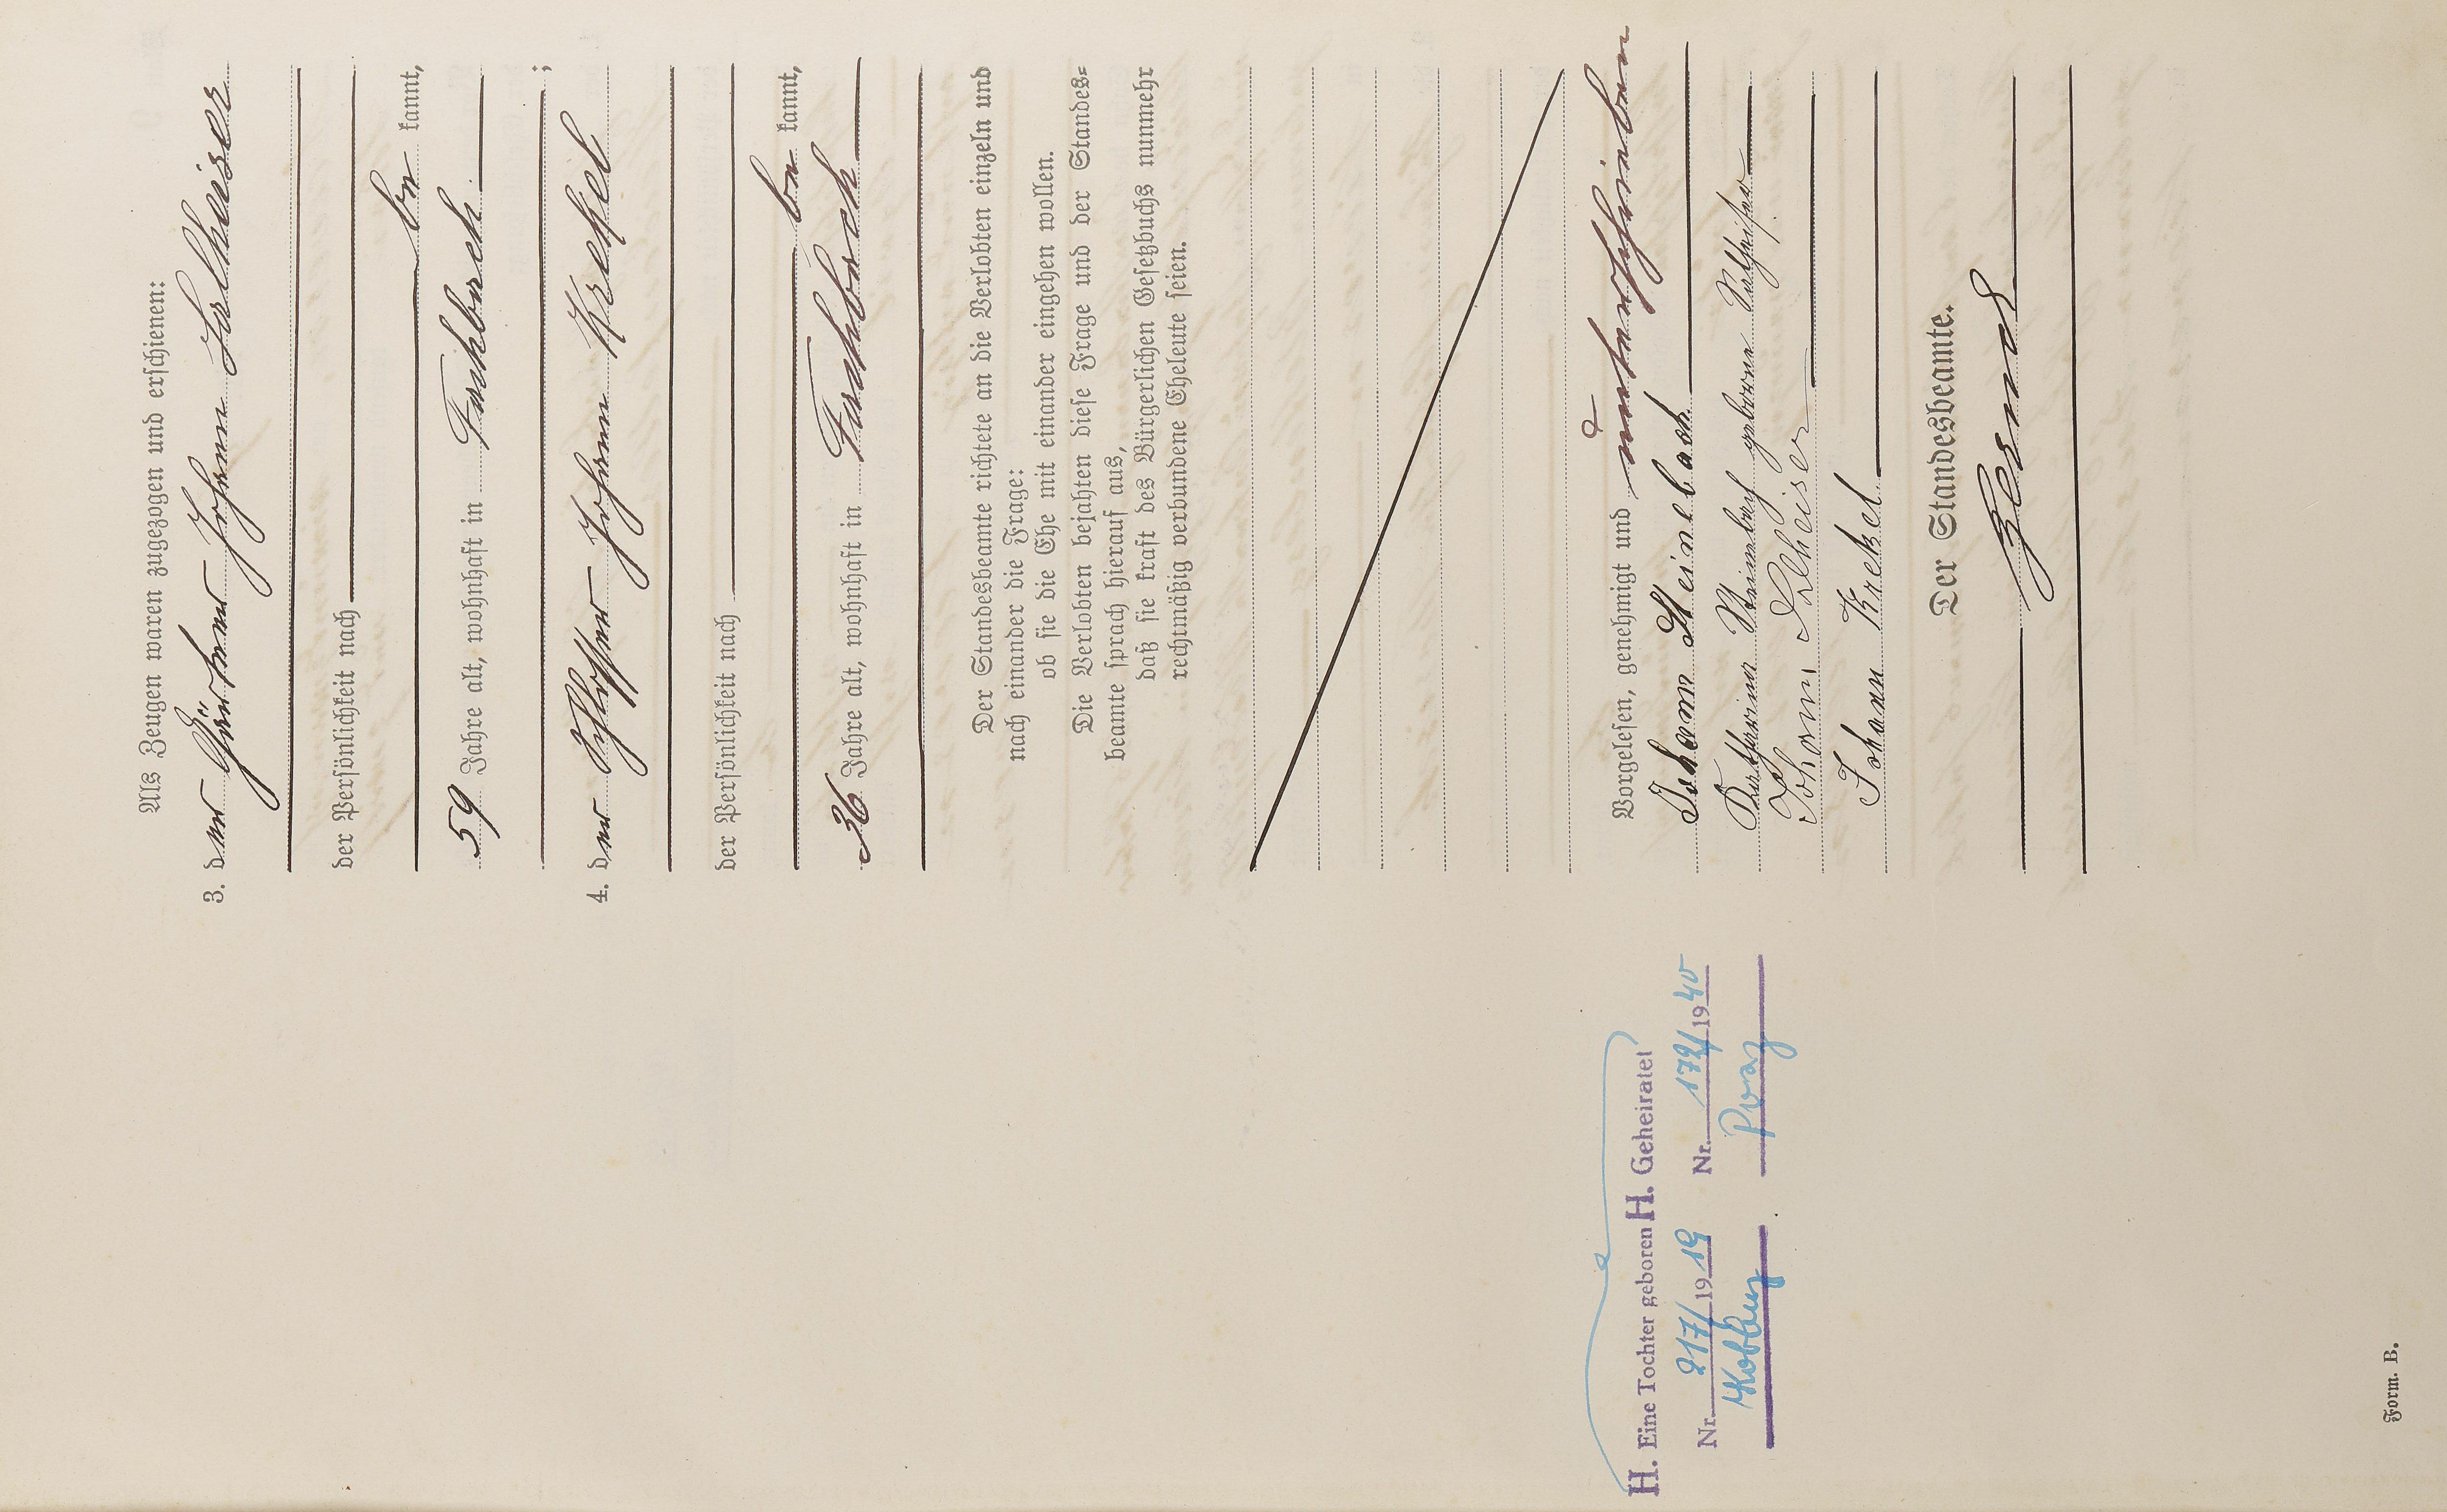 Als Zeugen waren zugezogen und erschienen:
3. der Gärtner Johann Salheiser
der Persönlichkeit nach
be kannt,
59 Jahre alt, wohnhaft in Fachbach
;
4. der Schlosser Johann Krekel
der Persönlichkeit nach
be kannt,
36 Jahre alt, wohnhaft in Fachbach
Der Standesbeamte richtete an die Verlobten einzeln und
nach einander die Frage:
ob sie die Ehe mit einander eingehen wollen.
Die Verlobten bejahten diese Frage und der Standes=
beamte sprach hierauf aus,
daß sie kraft des Bürgerlichen Gesetzbuchs nunmehr
rechtmäßig verbundene Eheleute seien.
Vorgelesen, genehmigt und unterschrieben
Johann Steinebach
Katharina Steinebach geborene Salheiser
Johann Salheiser
Johann Krekel
Der Standesbeamte.
H. Eine Tochter geboren H. Geheiratet
Nr. 217/1919 Nr. 172/1940
Koblenz
Form. B.